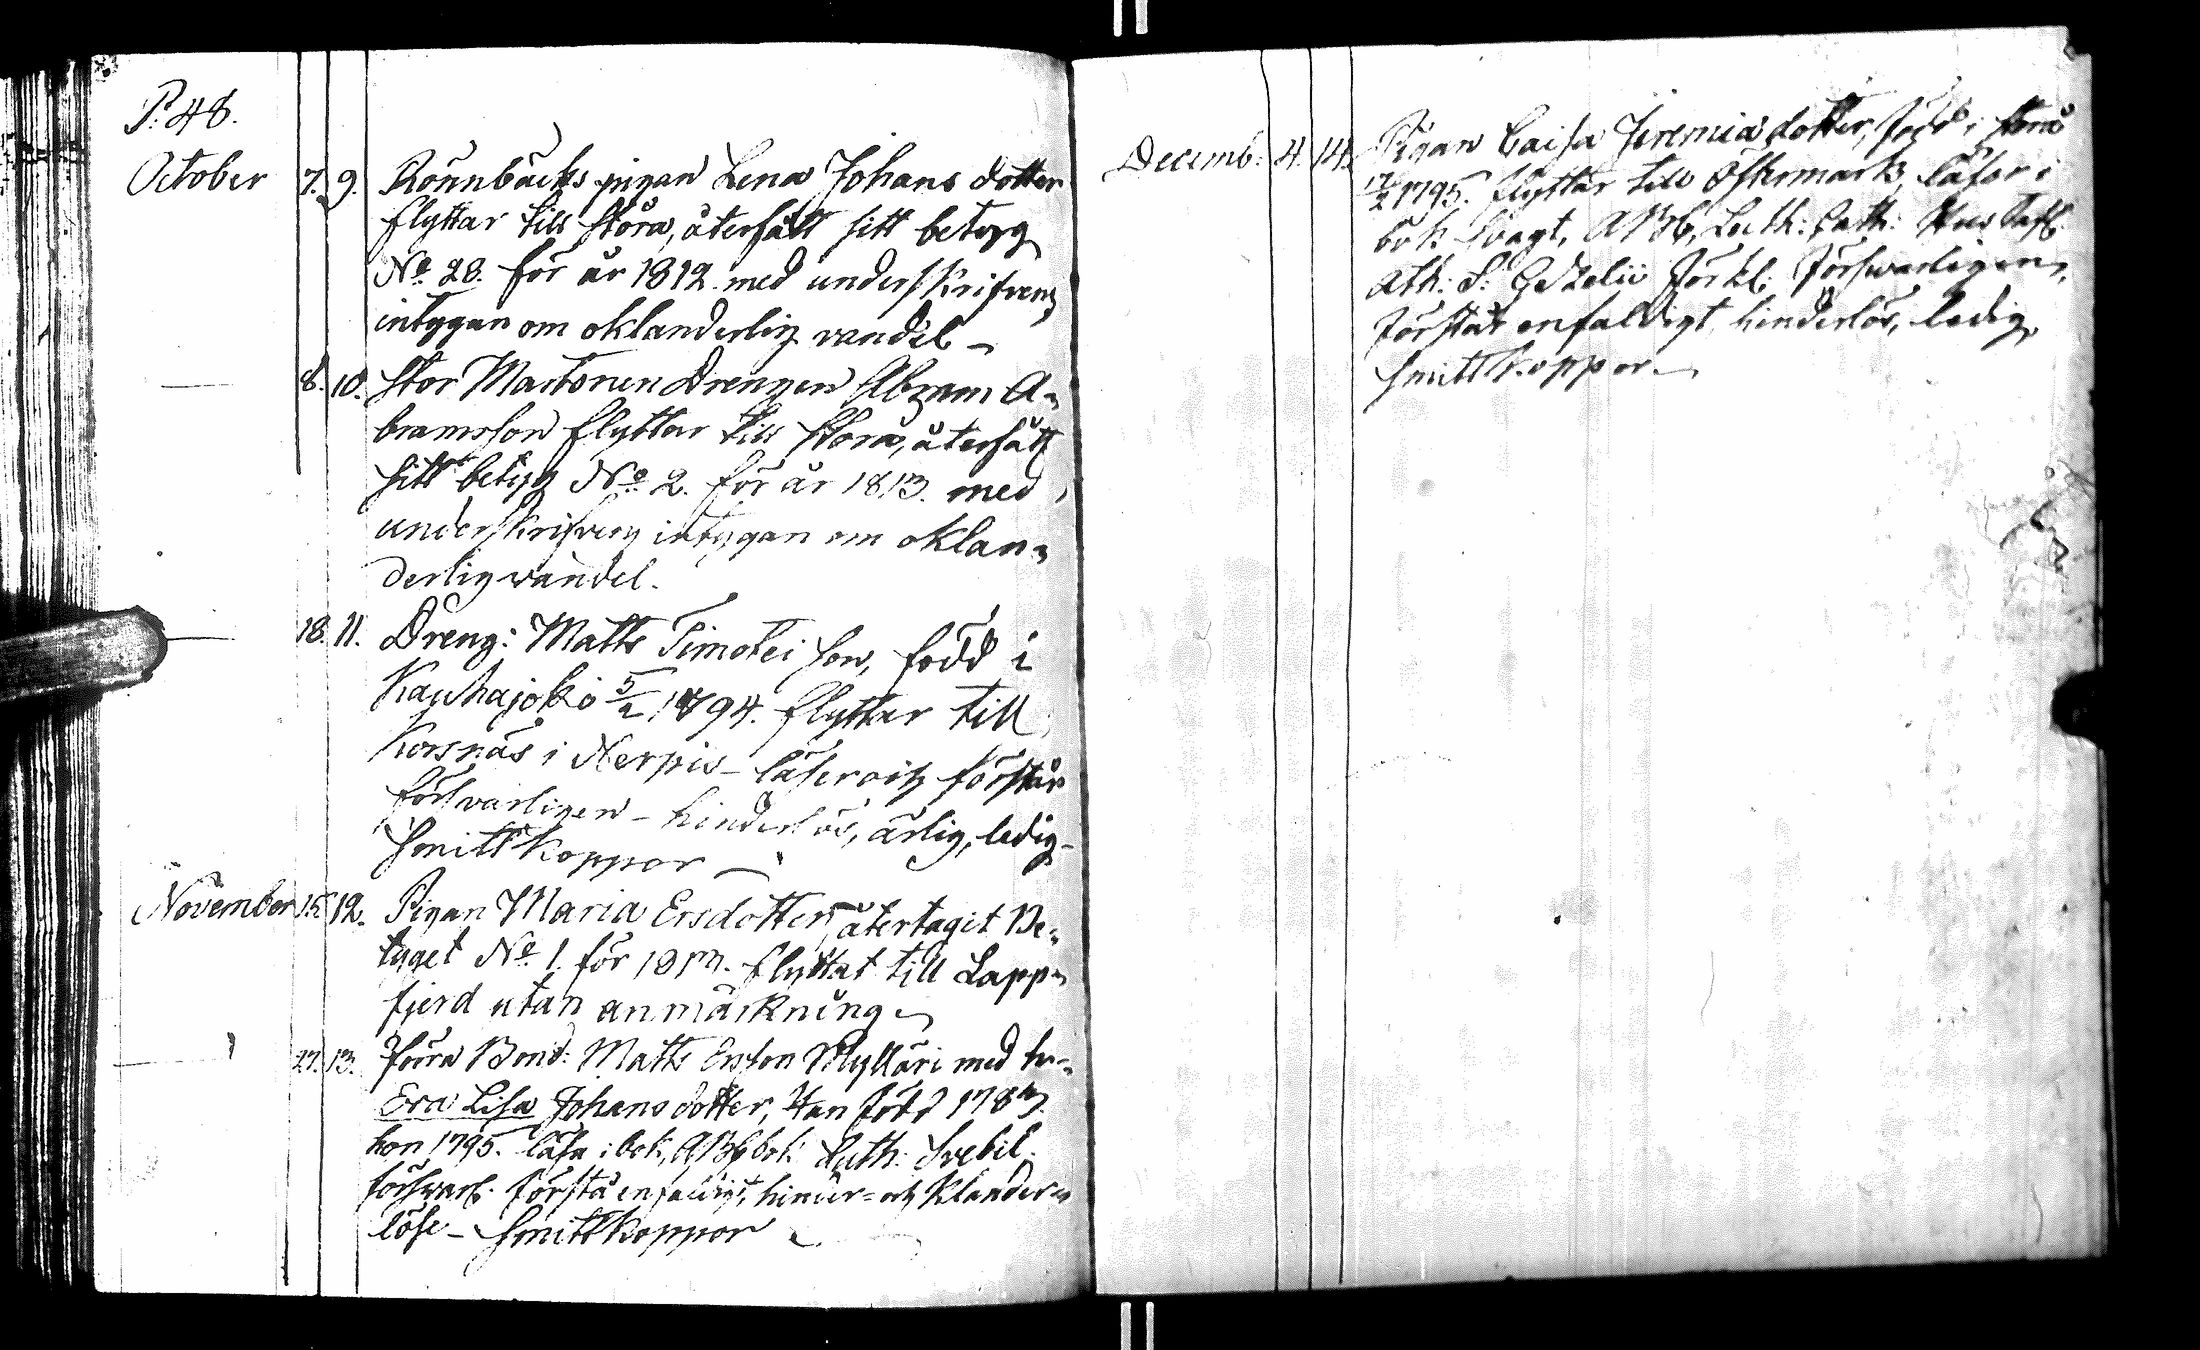 P. 48.
October 7. 9. Rönnbäcks pigan Lena Johans dotter
flyttar till Storå, återfått sitt betyg
No. 28. för år 1812. med underskrifven
intygan om oklanderlig vandel –
8. 10. Stor Martonen Drengen Abram A-
bramsson flyttar till Storå, återfått
sitt betyg No. 2. för år 1813. med
underskrifven intygan om oklan-
derlig vandel.
18. 11. Dreng: Matts Timotei son, född i
Kauhajoki 5/2 1794. flyttar till
Korsnäs i Nerpis – läser och förstår
försvarligen – hinderlös, ärlig, ledig –
Smittkoppor –
November 15. 12. Pigan Maria Ersdotter, återtagit Be-
tyget No. 1. för 1813. flyttat till Lapp-
fjerd utan anmärkning
27. 13. Förra Bond: Matts Ersson Mylläri med hu-
Eva Lisa Johans dotter, Han född 1783.
hon 1795. läsa i bok, ABC bok Luth: Svebil.
försvarl. förstå enfaldigt, hinder- och klander-
löse – Smittkoppor
Decemb: 4. 14. Pigan Caisa Jeremiæ dotter, född i Storå
1795. flyttar till Östermark, läser i
bok svagt, ABC, Luth: Cath: Hus Tafl.
Ath: S: Gezelii förkl: försvarligen,
förstår enfaldigt, hinderlös, ledig,
Smittkoppor. –